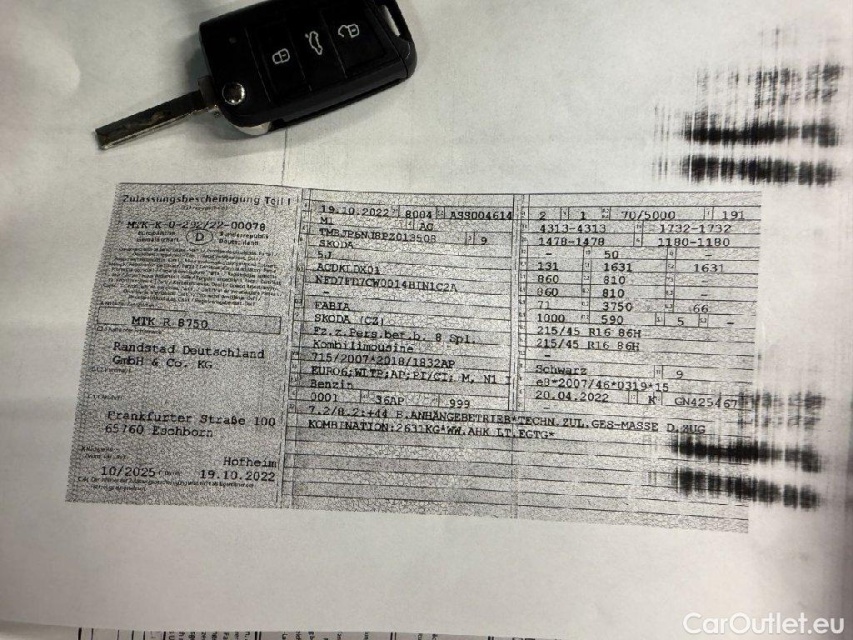 Zulassungsbescheinigung Teil I
Europäische Gemeinschaft
D
Bundesrepublik Deutschland
MTK R 8750
Randstad Deutschland
GmbH & Co. KG
Frankfurter Straße 100
65760 Eschborn
Hofheim
10/2025
19.10.2022
19.10.2022 8004 ASS004614
M1 AC
9
SKODA
5J
ACDKLDX01
–
FABIA
SKODA (CZ)
Fz.z.Pers.bef.b. 8 Spl.
Kombilimousine
715/2007*2018/1832AP
EURO6;WLTP;AP;PI/CI; M, N1 I
Benzin
0001 36AP 999
7.2/8.2:+44 B.ANHÄNGEBETRIEB*TECHN.ZUL.GES-MASSE D.ZUG
KOMBINATION:2631KG*WW.AHK LT.EGTG*
2 1 70/5000 191
4313-4313 1732-1732
1478-1478 1180-1180
– 50 –
131 1631 1631
860 810 –
860 810 –
71 3750 66
1000 590 5 –
215/45 R16 86H
215/45 R16 86H
–
Schwarz 9
e8*2007/46*0319*15
20.04.2022 K GN425467
CarOutlet.eu